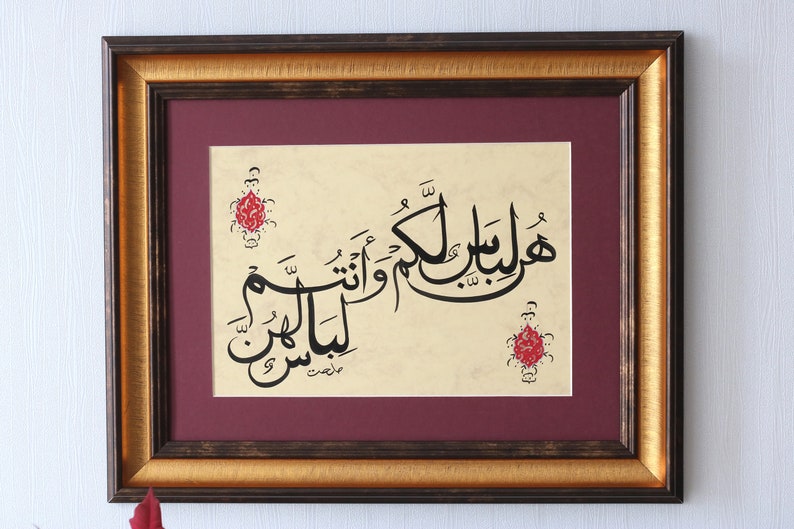 هُنَّ لِبَاسٌ لَّكُمْ وَأَنْتُمْ
لِبَاسٌ لَّهُنَّ